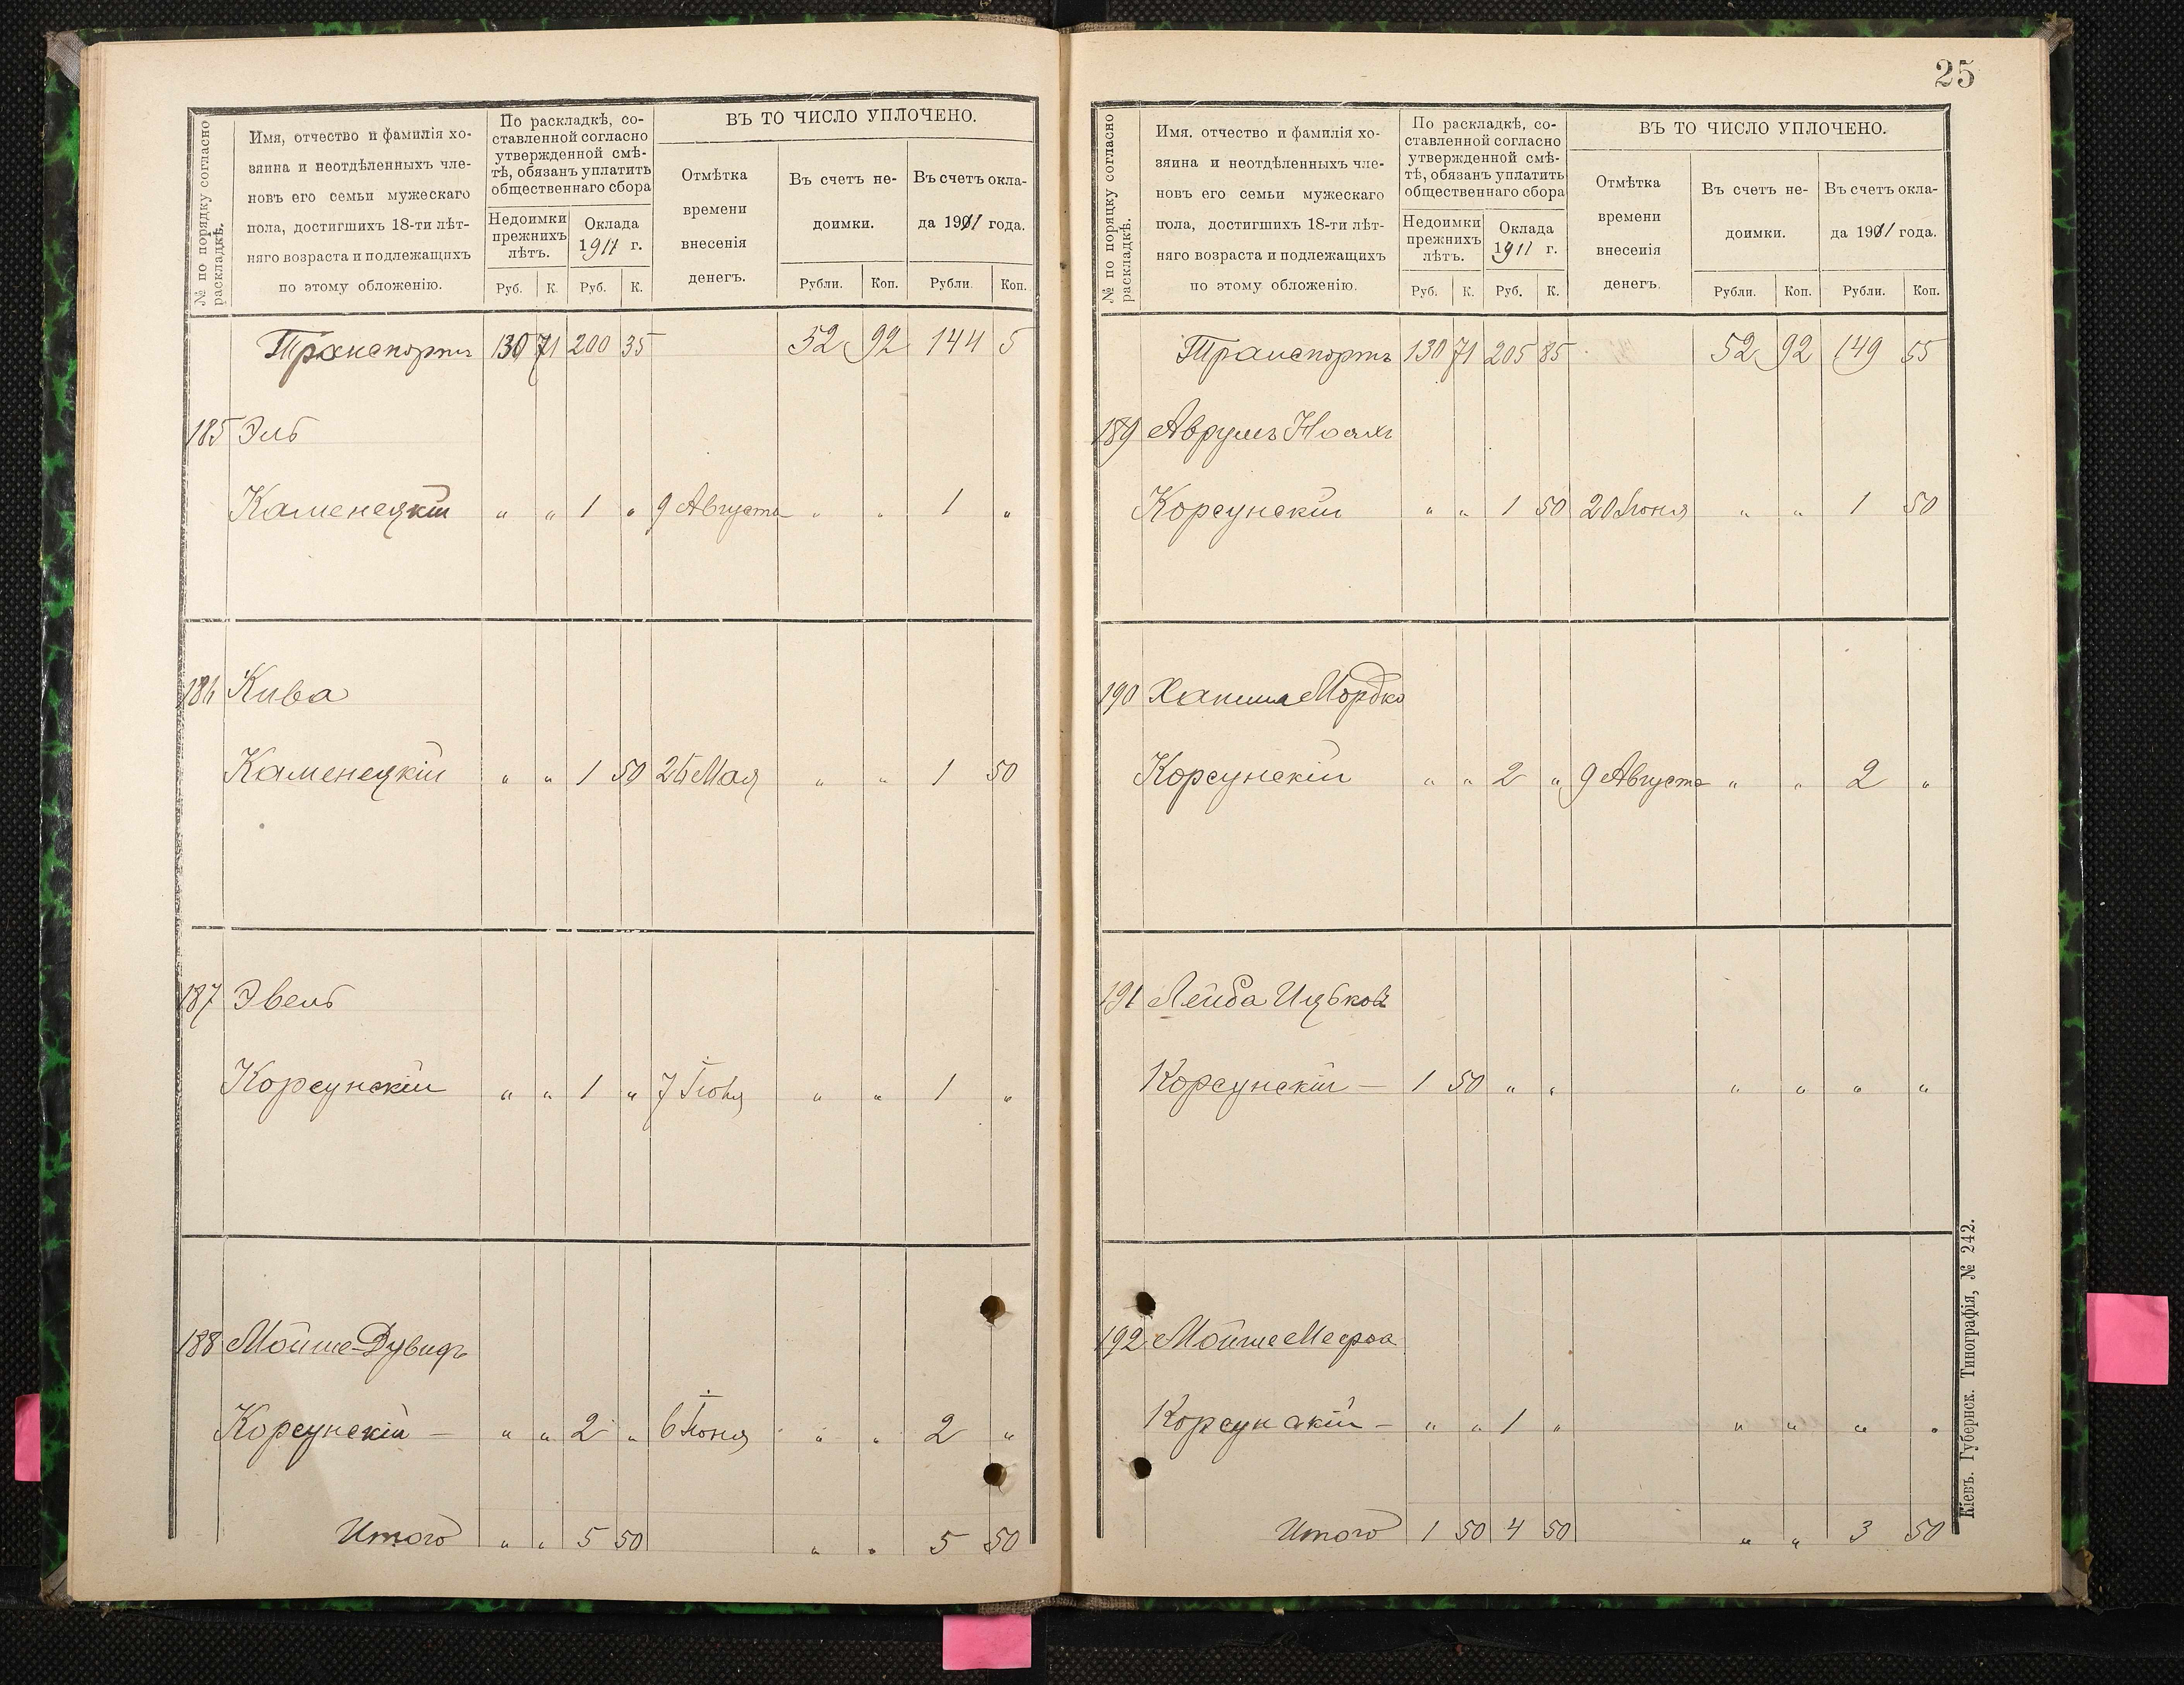 № по порядку согласно
раскладкѣ.
Имя, отчество и фамилія хо-
зяина и неотдѣленныхъ чле-
новъ его семьи мужескаго
пола, достигшихъ 18-ти лѣт-
няго возраста и подлежащихъ
по этому обложенію.
По раскладкѣ, со-
ставленной согласно
утвержденной смѣ-
тѣ, обязанъ уплатить
общественнаго сбора
Недоимки
прежнихъ
лѣтъ.
Оклада
1911 г.
Руб. К. Руб. К.
ВЪ ТО ЧИСЛО УПЛОЧЕНО.
Отмѣтка
времени
внесенія
денегъ.
Въ счетъ не-
доимки.
Въ счетъ окла-
да 1911 года.
Рубли. Коп. Рубли. Коп.
Транспортъ 130 71 200 35 52 92 144 5
185 Эль
Каменецкій " " 1 " 9 Августа " " 1 "
186 Кива
Каменецкій " " 1 50 25 Мая " " 1 50
187 Эвель
Корсунскій " " 1 " 7 Іюня " " 1 "
188 Мойше-Дувидъ
Корсунскій — " " 2 " 6 Іюня " " 2 "
Итого " " 5 50 " " 5 50
25
№ по порядку согласно
раскладкѣ.
Имя, отчество и фамилія хо-
зяина и неотдѣленныхъ чле-
новъ его семьи мужескаго
пола, достигшихъ 18-ти лѣт-
няго возраста и подлежащихъ
по этому обложенію.
По раскладкѣ, со-
ставленной согласно
утвержденной смѣ-
тѣ, обязанъ уплатить
общественнаго сбора
Недоимки
прежнихъ
лѣтъ.
Оклада
1911 г.
Руб. К. Руб. К.
ВЪ ТО ЧИСЛО УПЛОЧЕНО.
Отмѣтка
времени
внесенія
денегъ.
Въ счетъ не-
доимки.
Въ счетъ окла-
да 1911 года.
Рубли. Коп. Рубли. Коп.
Транспортъ 130 71 205 85 52 92 149 55
189 Аврумъ Ноахъ
Корсунскій " " 1 50 20 Іюня " " 1 50
190 Мордко
Корсунскій " " 2 " 9 Августа " " 2 "
191 Лейба Ицьковъ
Корсунскій — 1 50 " " " " " "
192 Мойше
Корсунскій — " " 1 " " " " "
Итого 1 50 4 50 " " 3 50
Кіевъ. Губернск. Типографія, № 242.